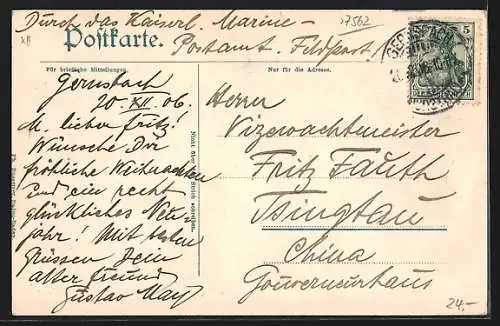 Durch das Kaiserl. Marine-
Postkarte.
Postamt. Feldpost!
37562
5
GERNSBACH
Für briefliche Mitteilungen.
Nur für die Adresse.
Gernsbach
20. XII. 06.
M. lieber Fritz!
Wünsche Dir
fröhliche Weihnachten
und ein recht
glückliches Neu-
jahr! Mit besten
Grüssen Dein
alter Freund
Gustav May
Nicht über den Strich schreiben.
Herrn
Vizewachtmeister
Fritz Fauth
Tsingtau
China
Gouverneurhaus
24.-